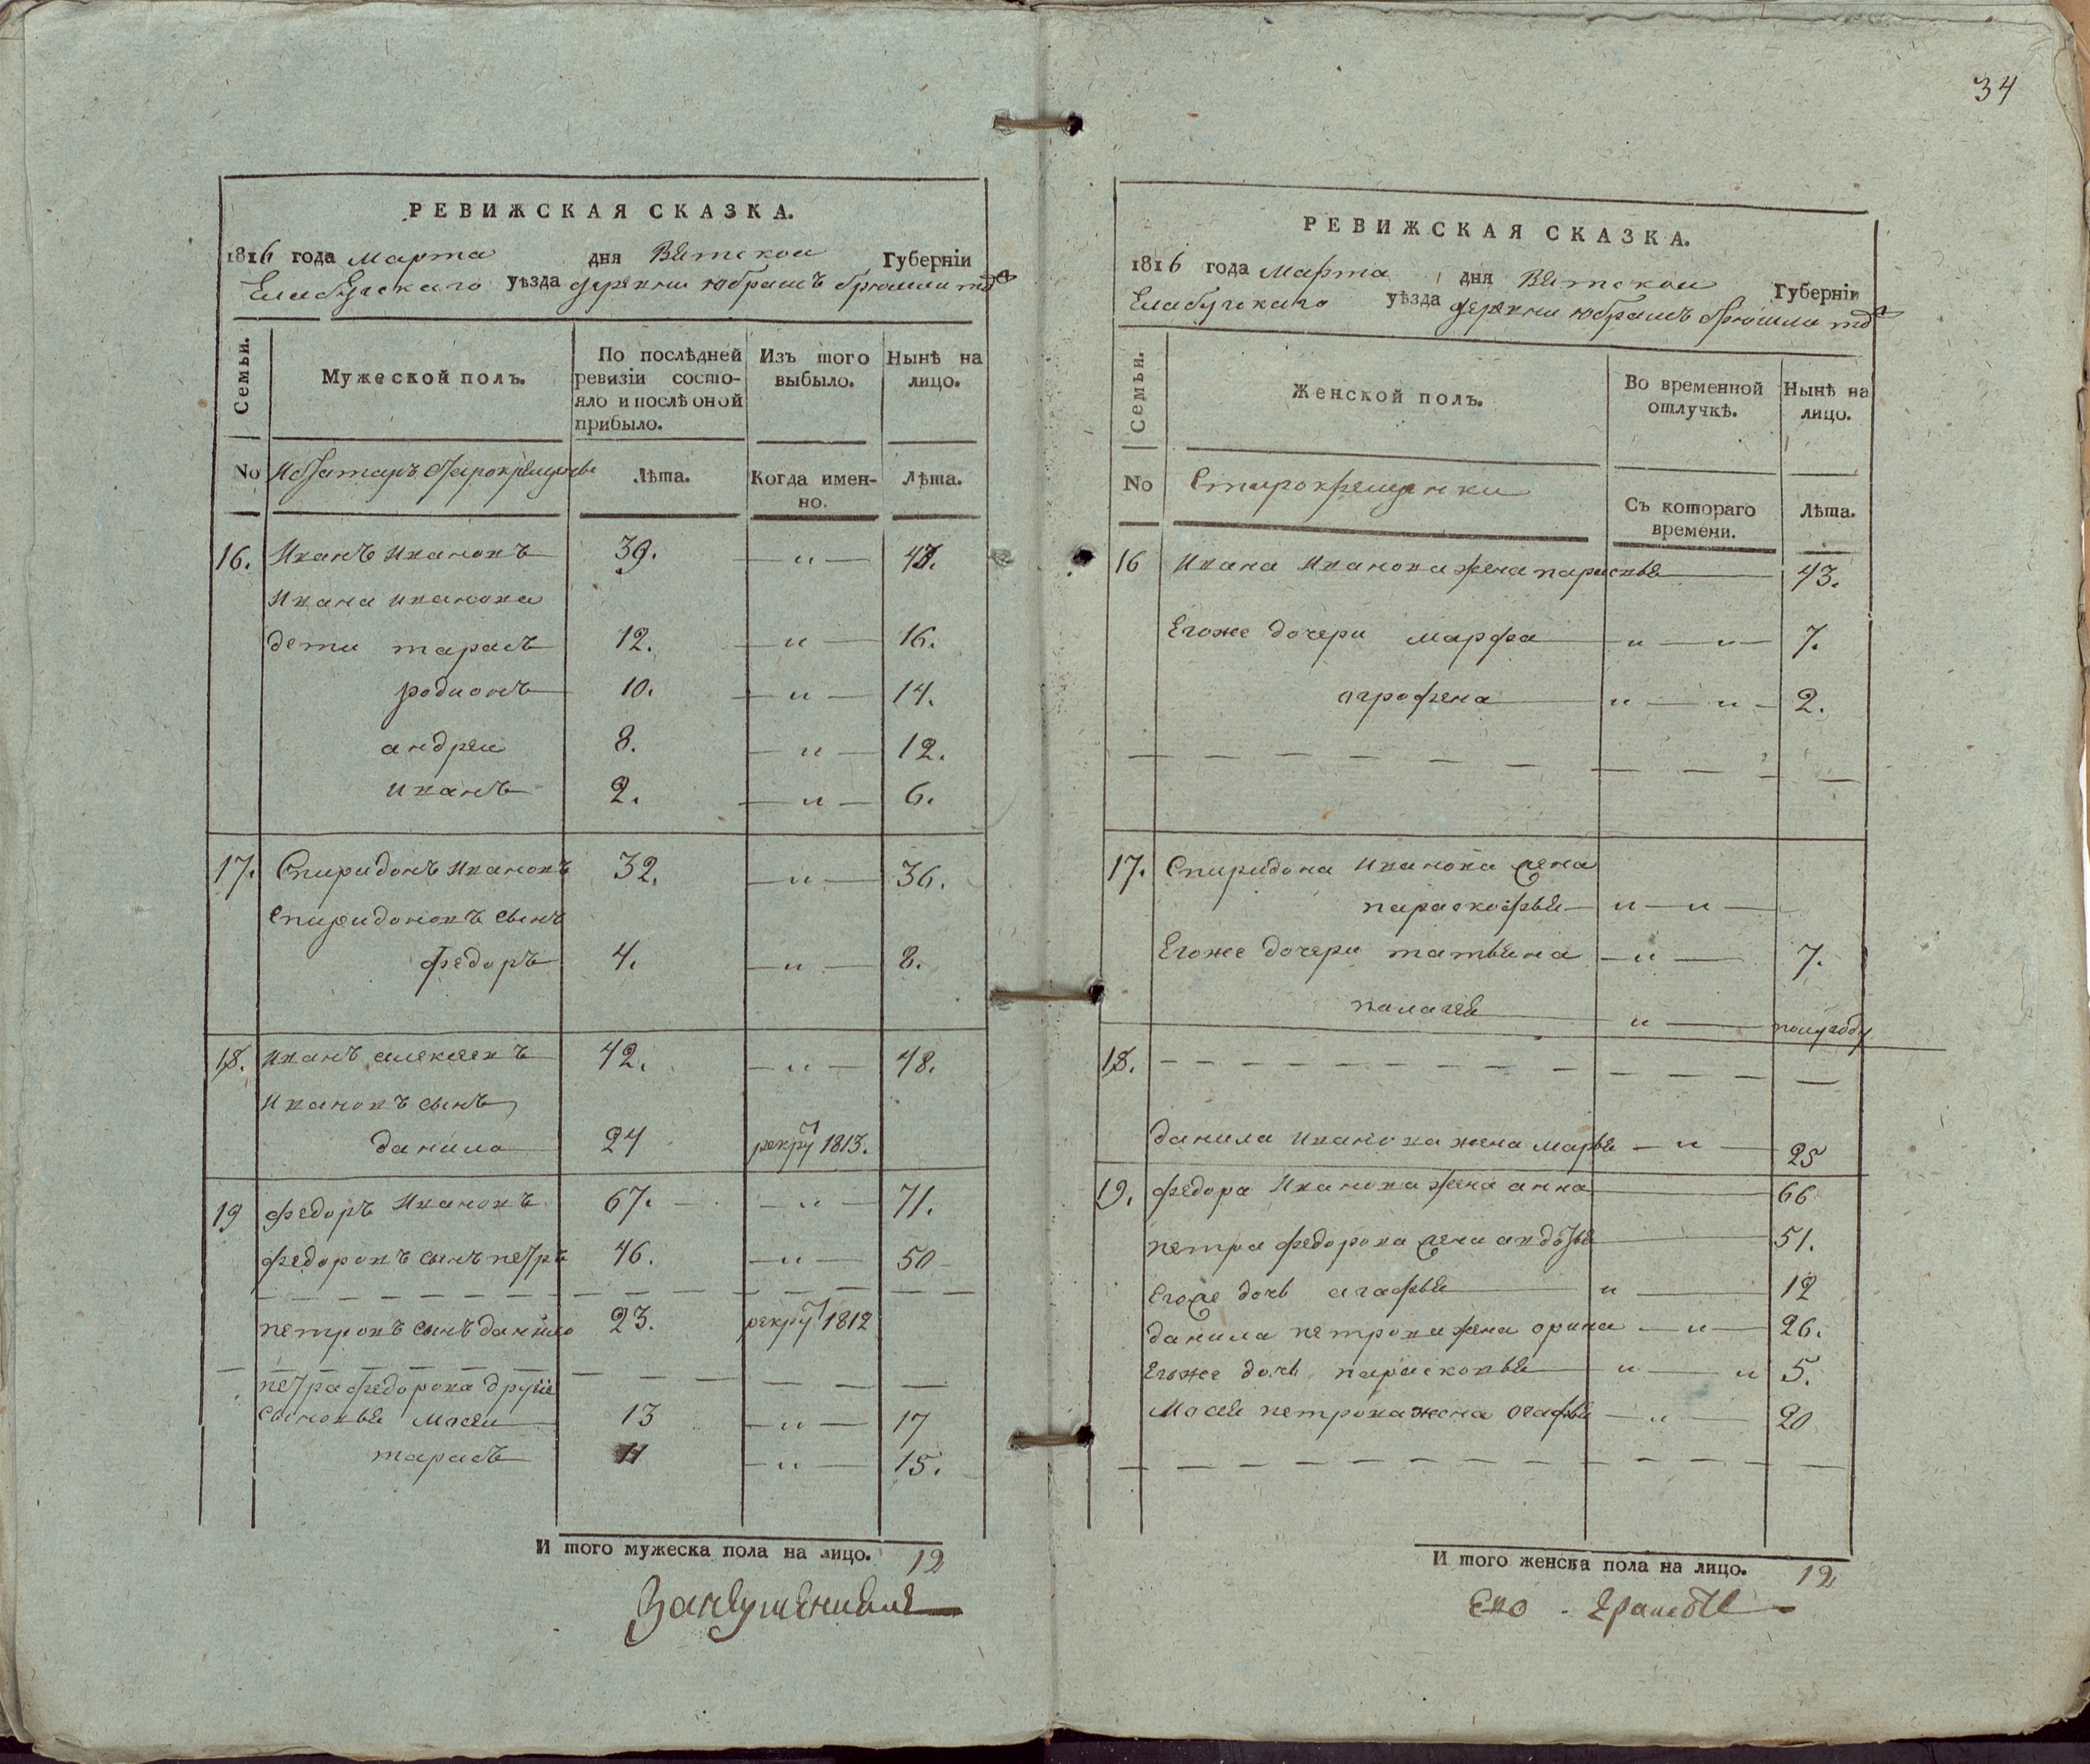 34
РЕВИЖСКАЯ СКАЗКА.
1816 года марта дня Вятской Губернiи
Елабугскаго уѣзда деревни юбрашъ брюшли тожъ
Семьи.
Мужеской полъ.
По послѣдней ревизіи состо-
яло и послѣ оной
прибыло.
Изъ того
выбыло.
Нынѣ на
лицо.
No
Лѣта.
Когда имен-
но.
Лѣта.
16. Иванъ Ивановъ 39. — " — 43.
Ивана иванова
дети тарасъ 12. — " — 16.
родионъ 10. — " — 14.
андреи 8. — " — 12.
иванъ 2. — " — 6.
17. Спиридонъ Ивановъ 32. — " — 36.
Спиридоновъ сынъ
федоръ 4. — " — 8.
18. иванъ алексеевъ 42. — " — 48.
Ивановъ сынъ
данило 24 рекрут 1813.
19 федоръ Ивановъ 67. — " — 71.
федоровъ сынъ петръ 46. — " — 50
петровъ сынъ данило 23. рекрут 1812
петра федорова другие
сыновья Мосеи 13 — " — 17
тарасъ 11 — " — 15.
И того мужеска пола на лицо. 12
РЕВИЖСКАЯ СКАЗКА.
1816 года Марта дня Вятской Губернiи
Елабугскаго уѣзда деревни юбрашъ брюшли тожъ
Семьи.
Женской полъ.
Во временной
отлучкѣ.
Нынѣ на
лицо.
No Старокрещенки
Съ котораго
времени.
Лѣта.
16 Ивана Иванова жена парасковья 43.
Егоже дочери марфа " — " — 7.
аграфена " — " — 2.
17. Спиридона Иванова жена
парасковья " — " —
Егоже дочери татьяна — " — 7.
палагея " — полугоду
18.
данила Иванова жена марья — " — 25
19. федора Иванова жена анна 66
петра федорова жена авдотья 51.
Егоже дочь агафья " — 12
данила петрова жена орина — " — 26.
Егоже дочь парасковья " — " 5.
Мосея петрова жена огафья — " — 20
И того женска пола на лицо. 12